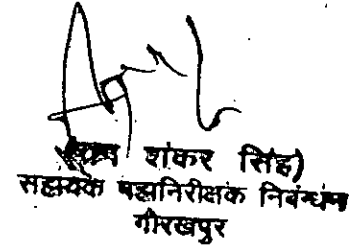 शंकर सिंह)
सहायक महानिरीक्षक निबंन्धन
गोरखपुर